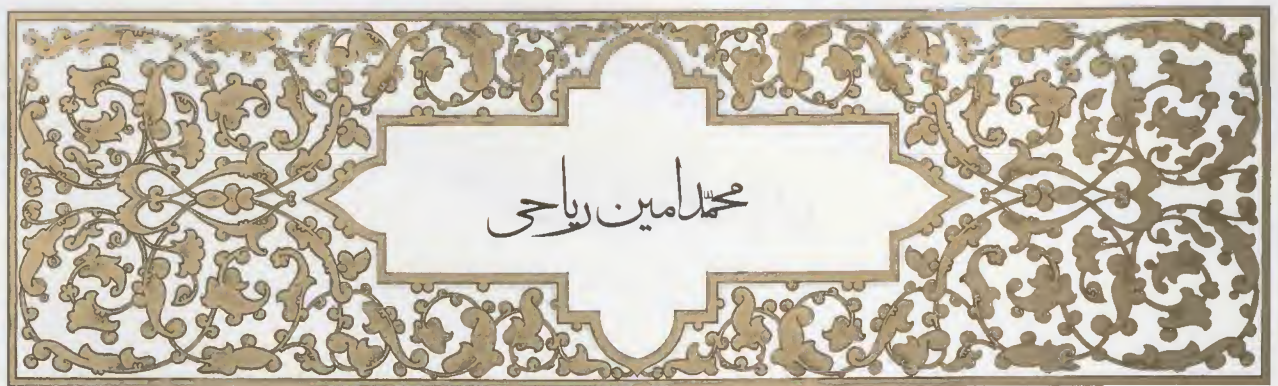 محمّدامین ریاحی